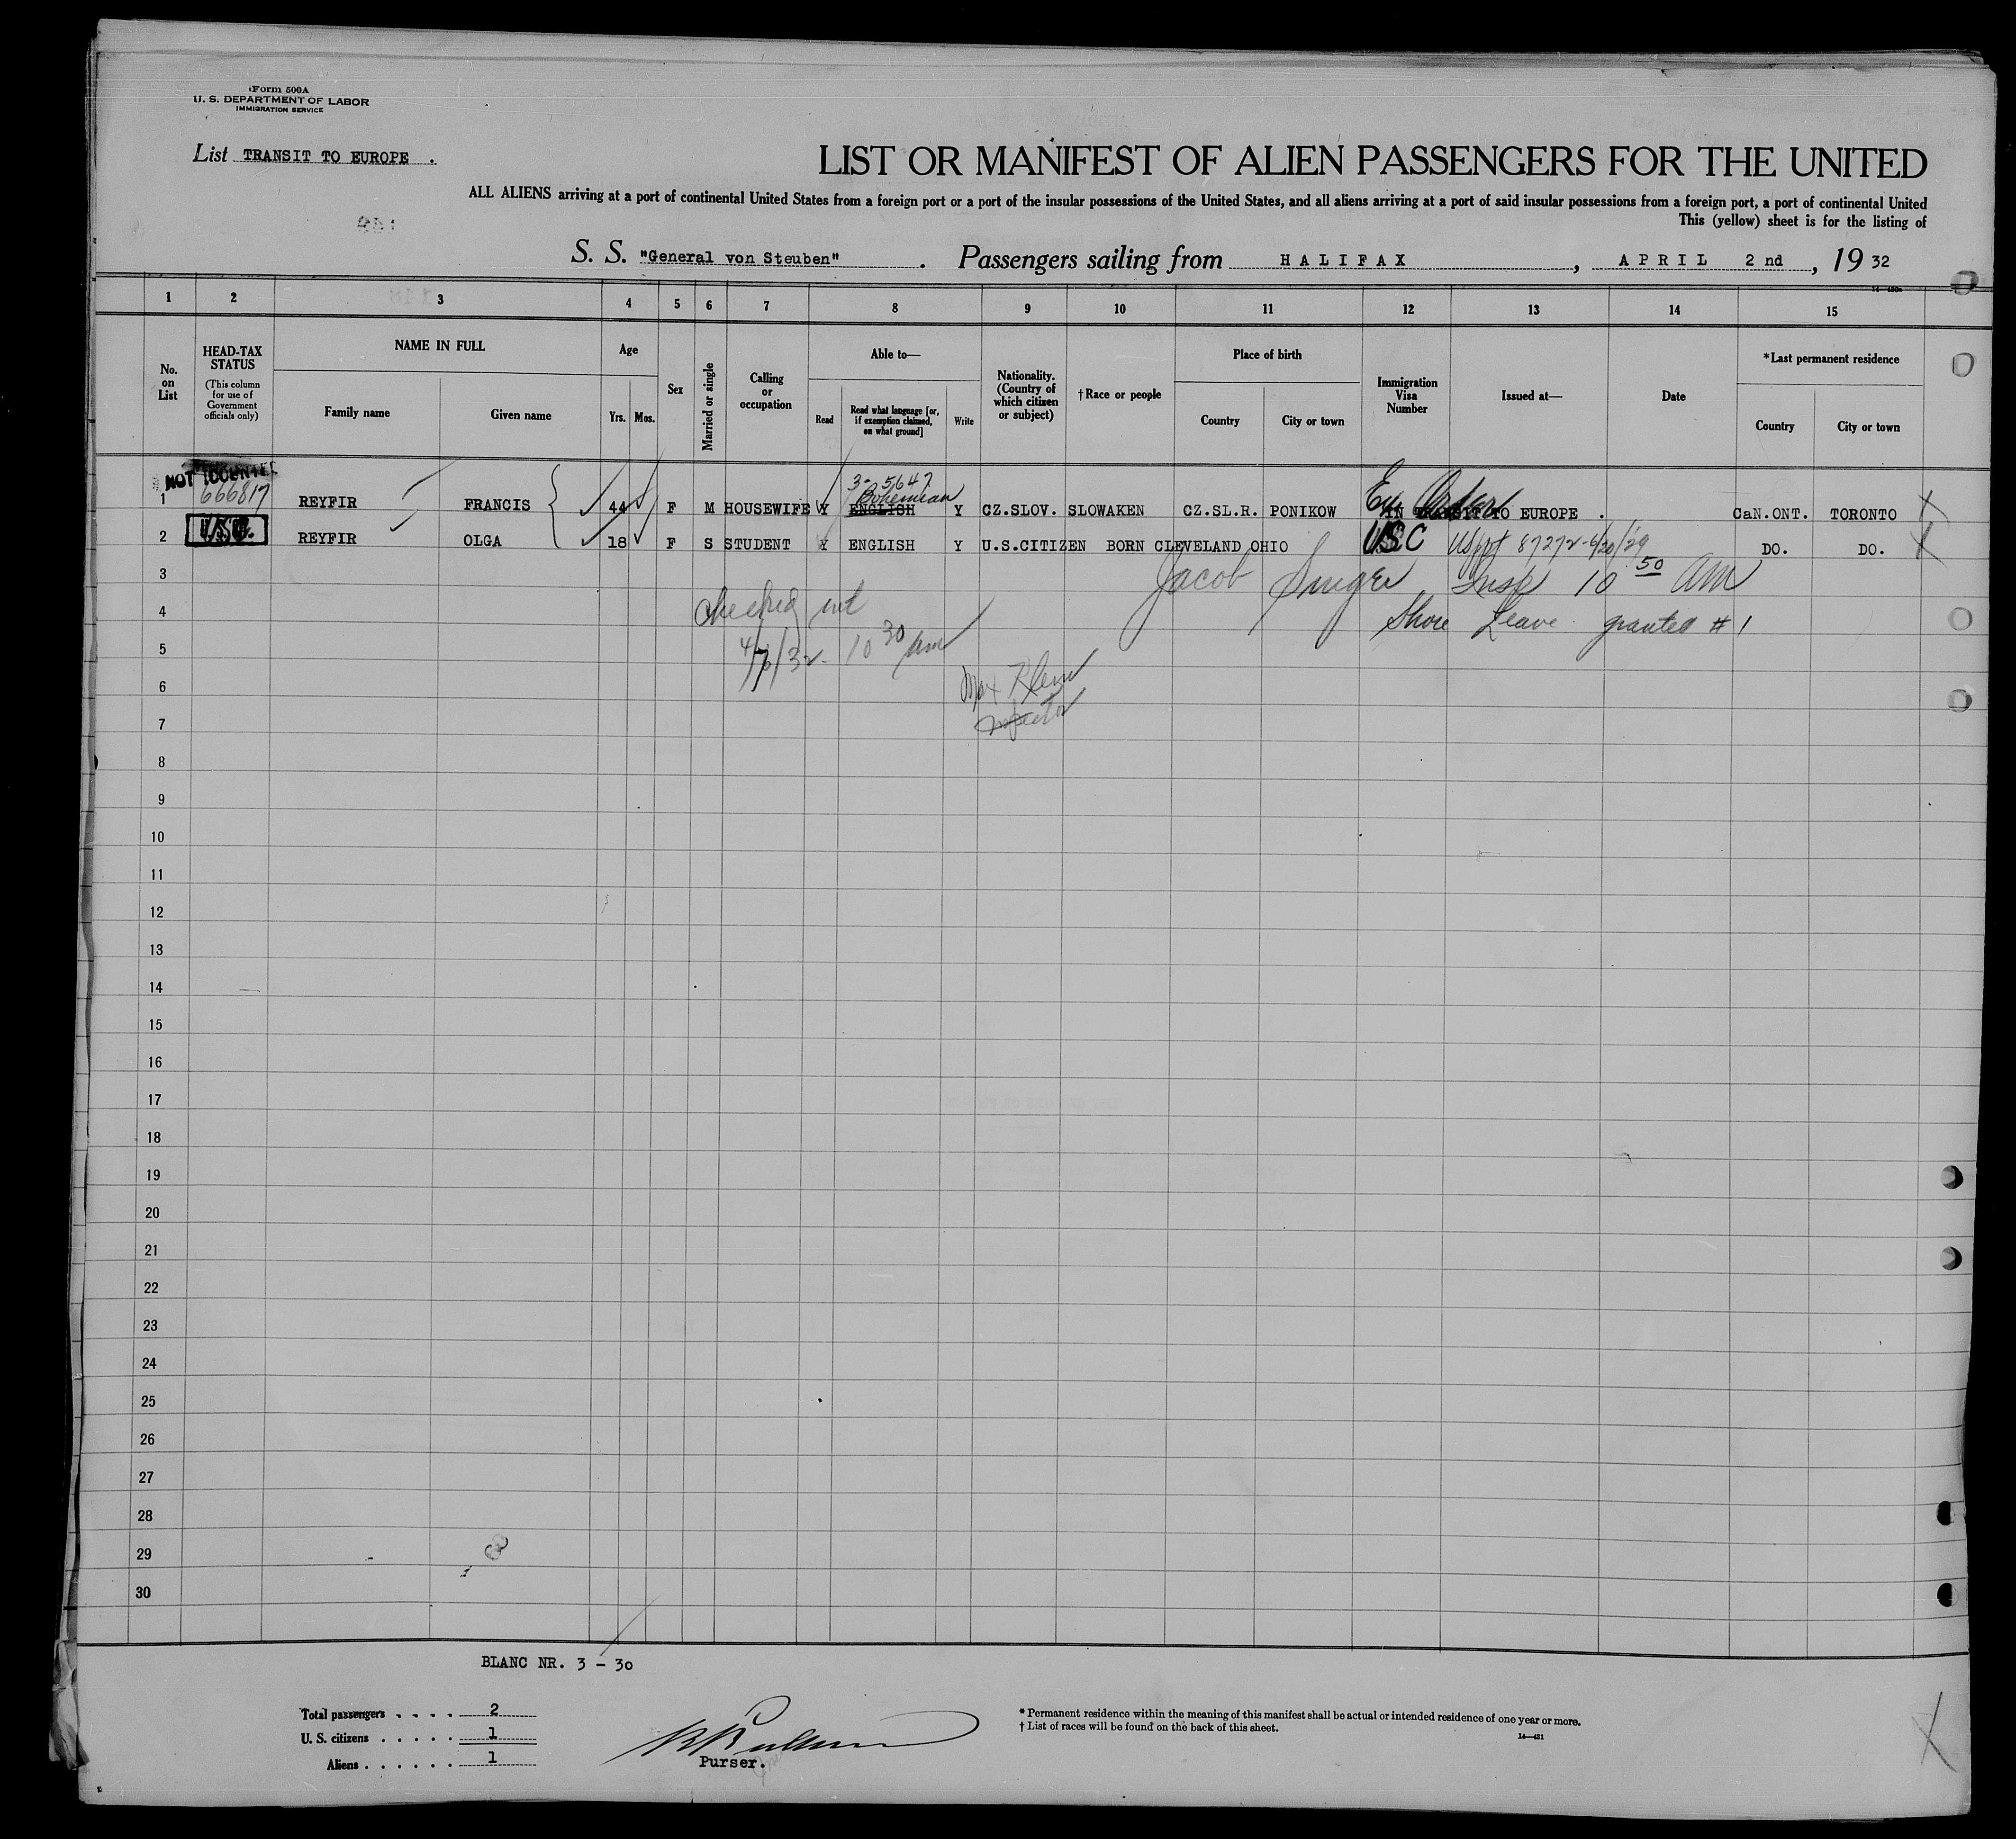 Form 500A
U. S. DEPARTMENT OF LABOR
IMMIGRATION SERVICE
List TRANSIT TO EUROPE .
LIST OR MANIFEST OF ALIEN PASSENGERS FOR THE UNITED
ALL ALIENS arriving at a port of continental United States from a foreign port or a port of the insular possessions of the United States, and all aliens arriving at a port of said insular possessions from a foreign port, a port of continental United
This (yellow) sheet is for the listing of
S. S. "General von Steuben" . Passengers sailing from HALIFAX , APRIL 2 nd , 19 32
1 2 3 4 5 6 7 8 9 10 11 12 13 14 15
No. on List
HEAD-TAX STATUS (This column for use of Government officials only)
NAME IN FULL
Family name Given name
Age
Yrs. Mos.
Sex
Married or single
Calling or occupation
Able to—
Read Read what language [or, if exemption claimed, on what ground] Write
Nationality. (Country of which citizen or subject)
†Race or people
Place of birth
Country City or town
Immigration Visa Number
Issued at—
Date
*Last permanent residence
Country City or town
NOT COUNTED
3- 5647
Bohemian
1 666817 REYFIR FRANCIS 44 F M HOUSEWIFE Y ENGLISH Y CZ.SLOV. SLOWAKEN CZ.SL.R. PONIKOW IN TRANSIT TO EUROPE . CaN.ONT. TORONTO
2 U.S.C. REYFIR OLGA 18 F S STUDENT Y ENGLISH Y U.S.CITIZEN BORN CLEVELAND OHIO USC US ppt 87272-6/20/29 DO. DO.
3 Jacob Singer Insp 10 50 am
4 checked out Shore Leave granted # 1
5 4/7/32 10 30 am
6 Max Klein
7 Inspector
8
9
10
11
12
13
14
15
16
17
18
19
20
21
22
23
24
25
26
27
28
29
30
BLANC NR. 3 - 30
Total passengers . . . . 2
U. S. citizens . . . . . 1
Aliens . . . . . . 1
Purser.
* Permanent residence within the meaning of this manifest shall be actual or intended residence of one year or more.
† List of races will be found on the back of this sheet.
14—431